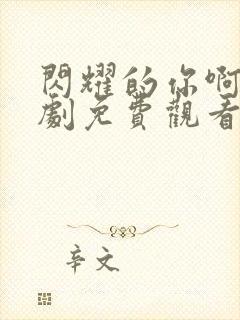 閃耀的你啊
劇免費觀看
辛文